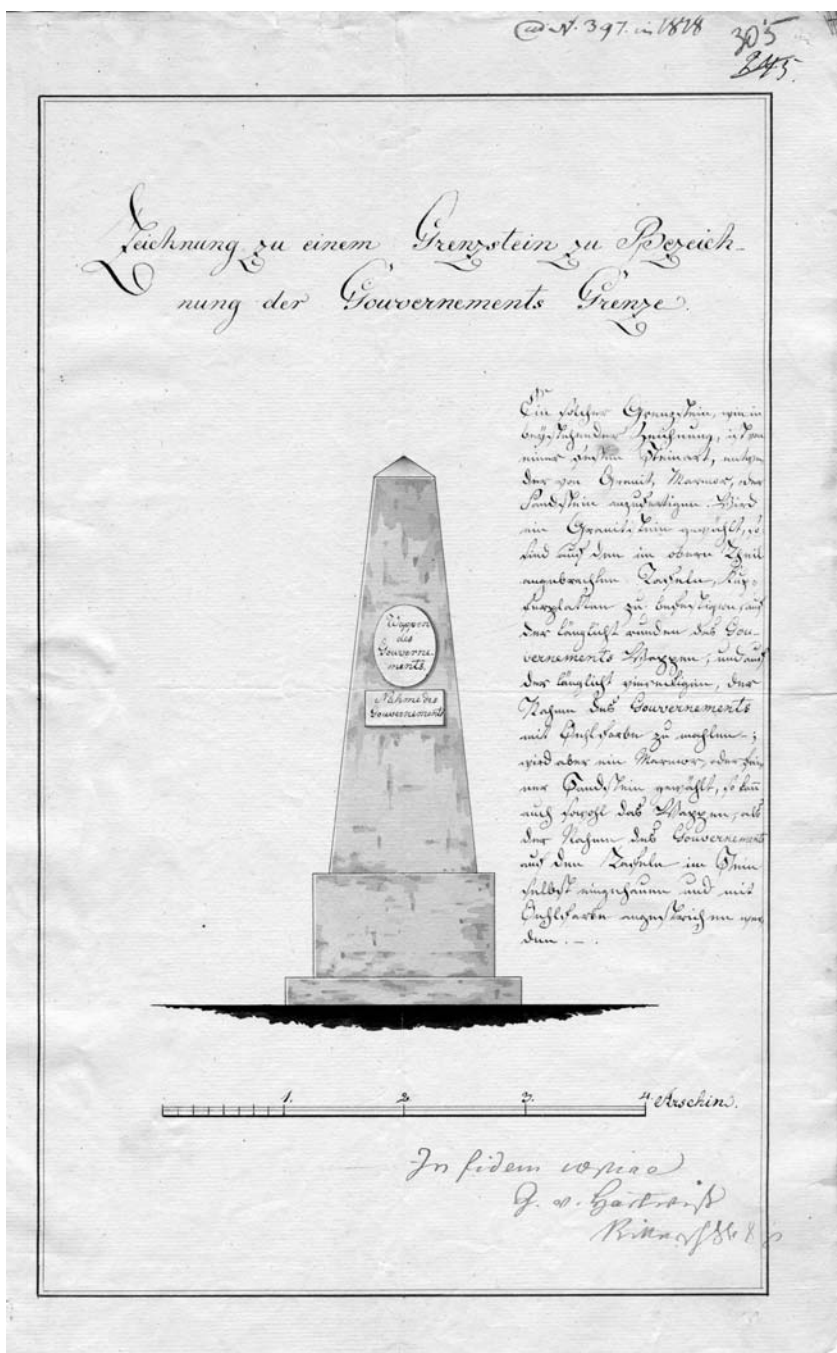 ad N. 397. in 1818
305
245.
Zeichnung zu einem Grenzstein zu Bezeich-
nung der Gouvernements Grenze.
Ein solcher Grenzstein, wie in
beystehender Zeichnung, ist von
einer festen Steinart, entwe
der von Granit, Marmor, oder
Sandstein anzufertigen. Wird
ein Granitstein gewählt, so
sind auf den im obern Theil
angebrachten Tafeln, Kup-
ferplatten zu befestigen, auf
der länglicht runden des Gou-
vernements Wappen, und auf
der länglicht viereckigen, der
Nahmen des Gouvernements
mit Oehlfarbe zu mahlen -;
wird aber ein Marmor, oder fei
ner Sandstein gewählt, so kann
auch sowohl das Wappen, als
der Nahmen des Gouvernements
auf den Tafeln im Stein
selbst eingehauen und mit
Oehlfarbe angestrichen wer
den. -.
Wappen
des
Gouverne-
ments.
Nahme des
Gouvernements
1. 2. 3. 4. Arschin.
In fidem copiae
G. v.